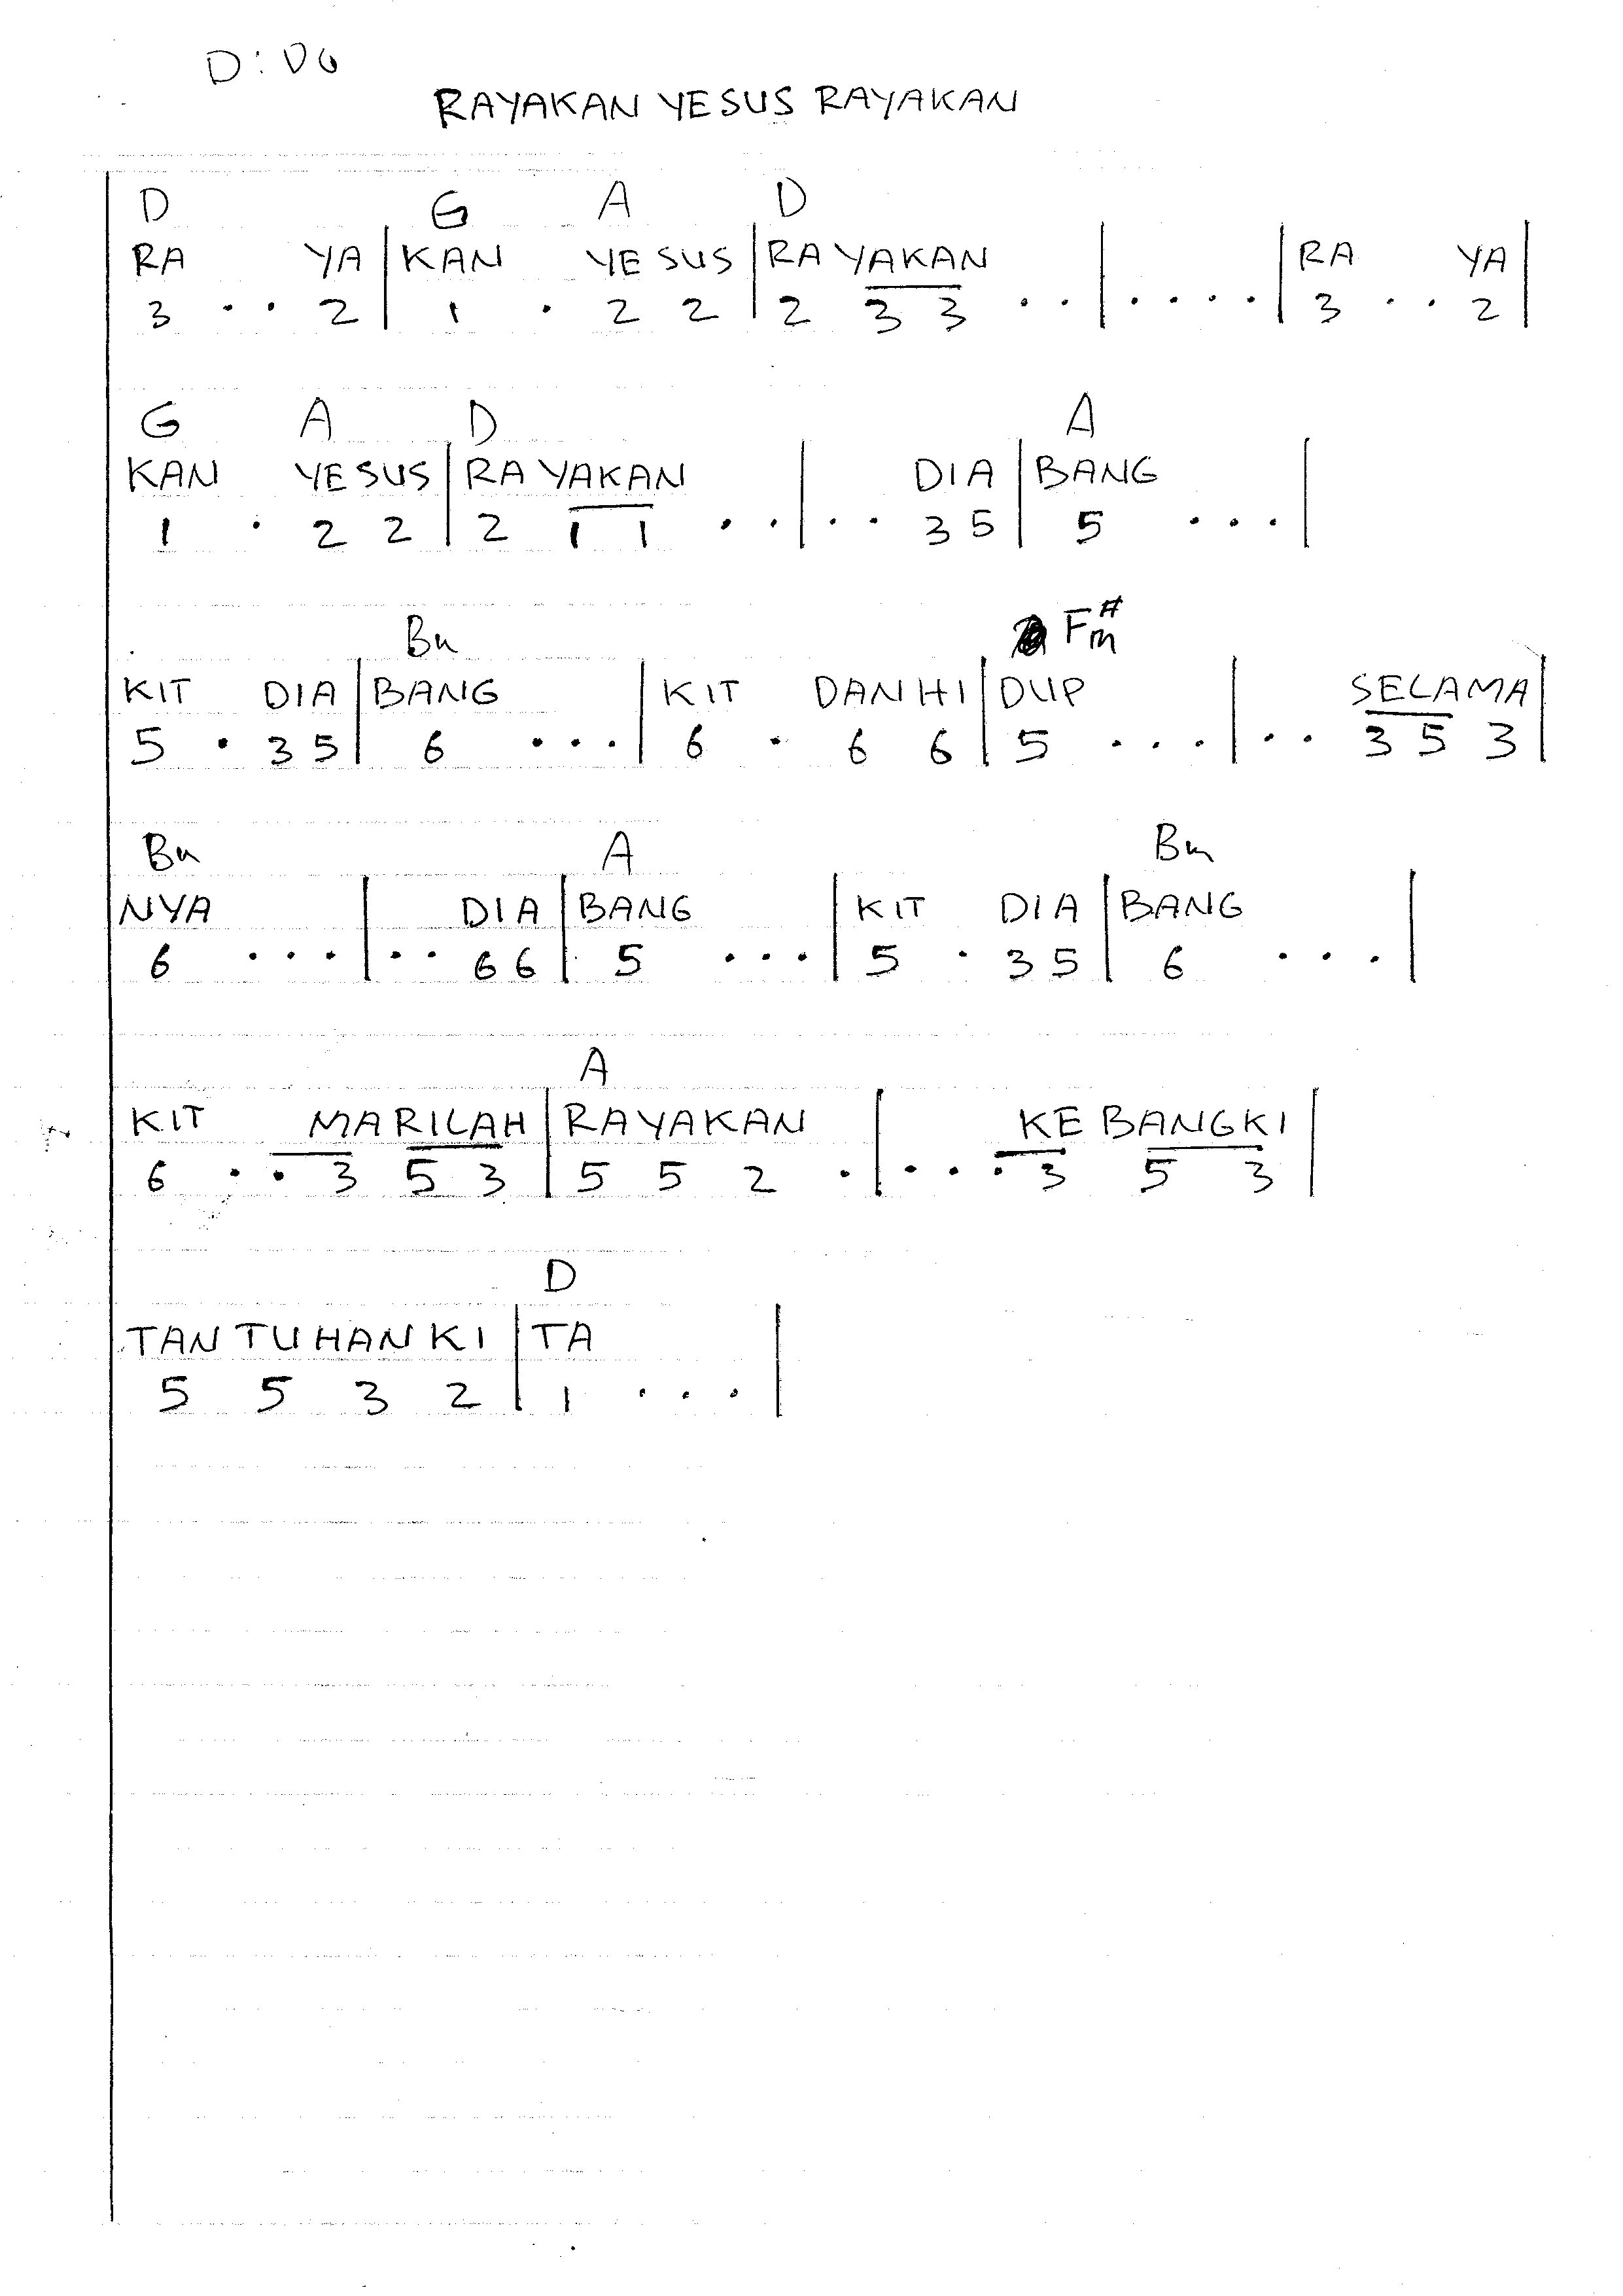 D : DO
RAYAKAN YESUS RAYAKAN
D G A D
RA YA | KAN YESUS | RAYAKAN | | RA YA |
3 . . 2 | 1 . 2 2 | 2 3 3 . . | . . . . | 3 . . 2 |
G A D A
KAN YESUS | RAYAKAN | DIA | BANG |
1 . 2 2 | 2 1 1 . . | . . 3 5 | 5 . . . |
Bm F#m
KIT DIA | BANG | KIT DAN HI | DUP | SELAMA |
5 . 3 5 | 6 . . . | 6 . 6 6 | 5 . . . | . . 3 5 3 |
Bm A Bm
NYA | DIA | BANG | KIT DIA | BANG |
6 . . . | . . 6 6 | 5 . . . | 5 . 3 5 | 6 . . . |
A
KIT MARILAH | RAYAKAN | KEBANGKI |
6 . . 3 5 3 | 5 5 2 . | . . . 3 5 3 |
D
TAN TUHAN KI | TA |
5 5 3 2 | 1 . . . |